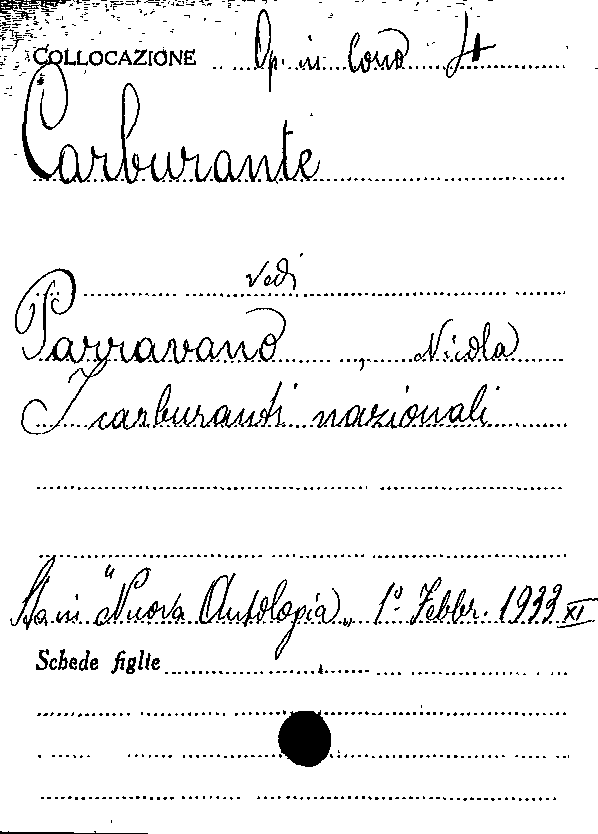 COLLOCAZIONE Op. in Corso H
Carburante
vedi
Parravano, Nicola
I carburanti nazionali
Sta in "Nuova Antologia„ 1° Febbr. 1933 XI
Schede figlie